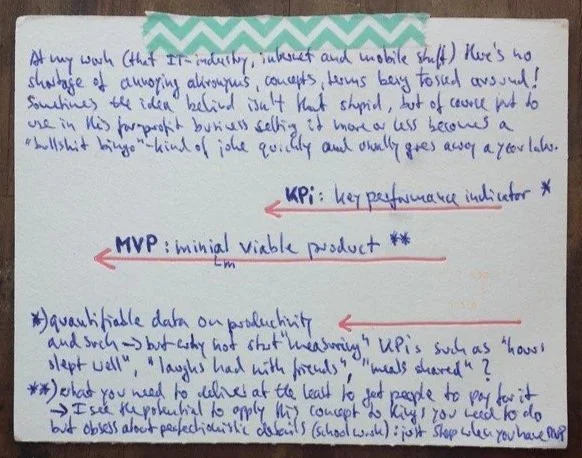 At my work (that IT-industry, internet and mobile stuff) there's no
shortage of annoying akronyms, concepts, terms being tossed around!
Sometimes the idea behind isn't that stupid, but of course put to
use in this for-profit business setting it more or less becomes a
"bullshit bingo"-kind of joke quickly and usually goes away a year later.
KPi: key performance indicator *
MVP: minial viable product **
m
*) quantifiable data on productivity
and such → but why not start "measuring" KPIs such as "hours
slept well", "laughs had with friends", "meals shared"?
**) what you need to deliver at the least to get people to pay for it
→ I see the potential to apply this concept to things you need to do
but obsess about perfectionistic details (school work): just stop when you have MVP